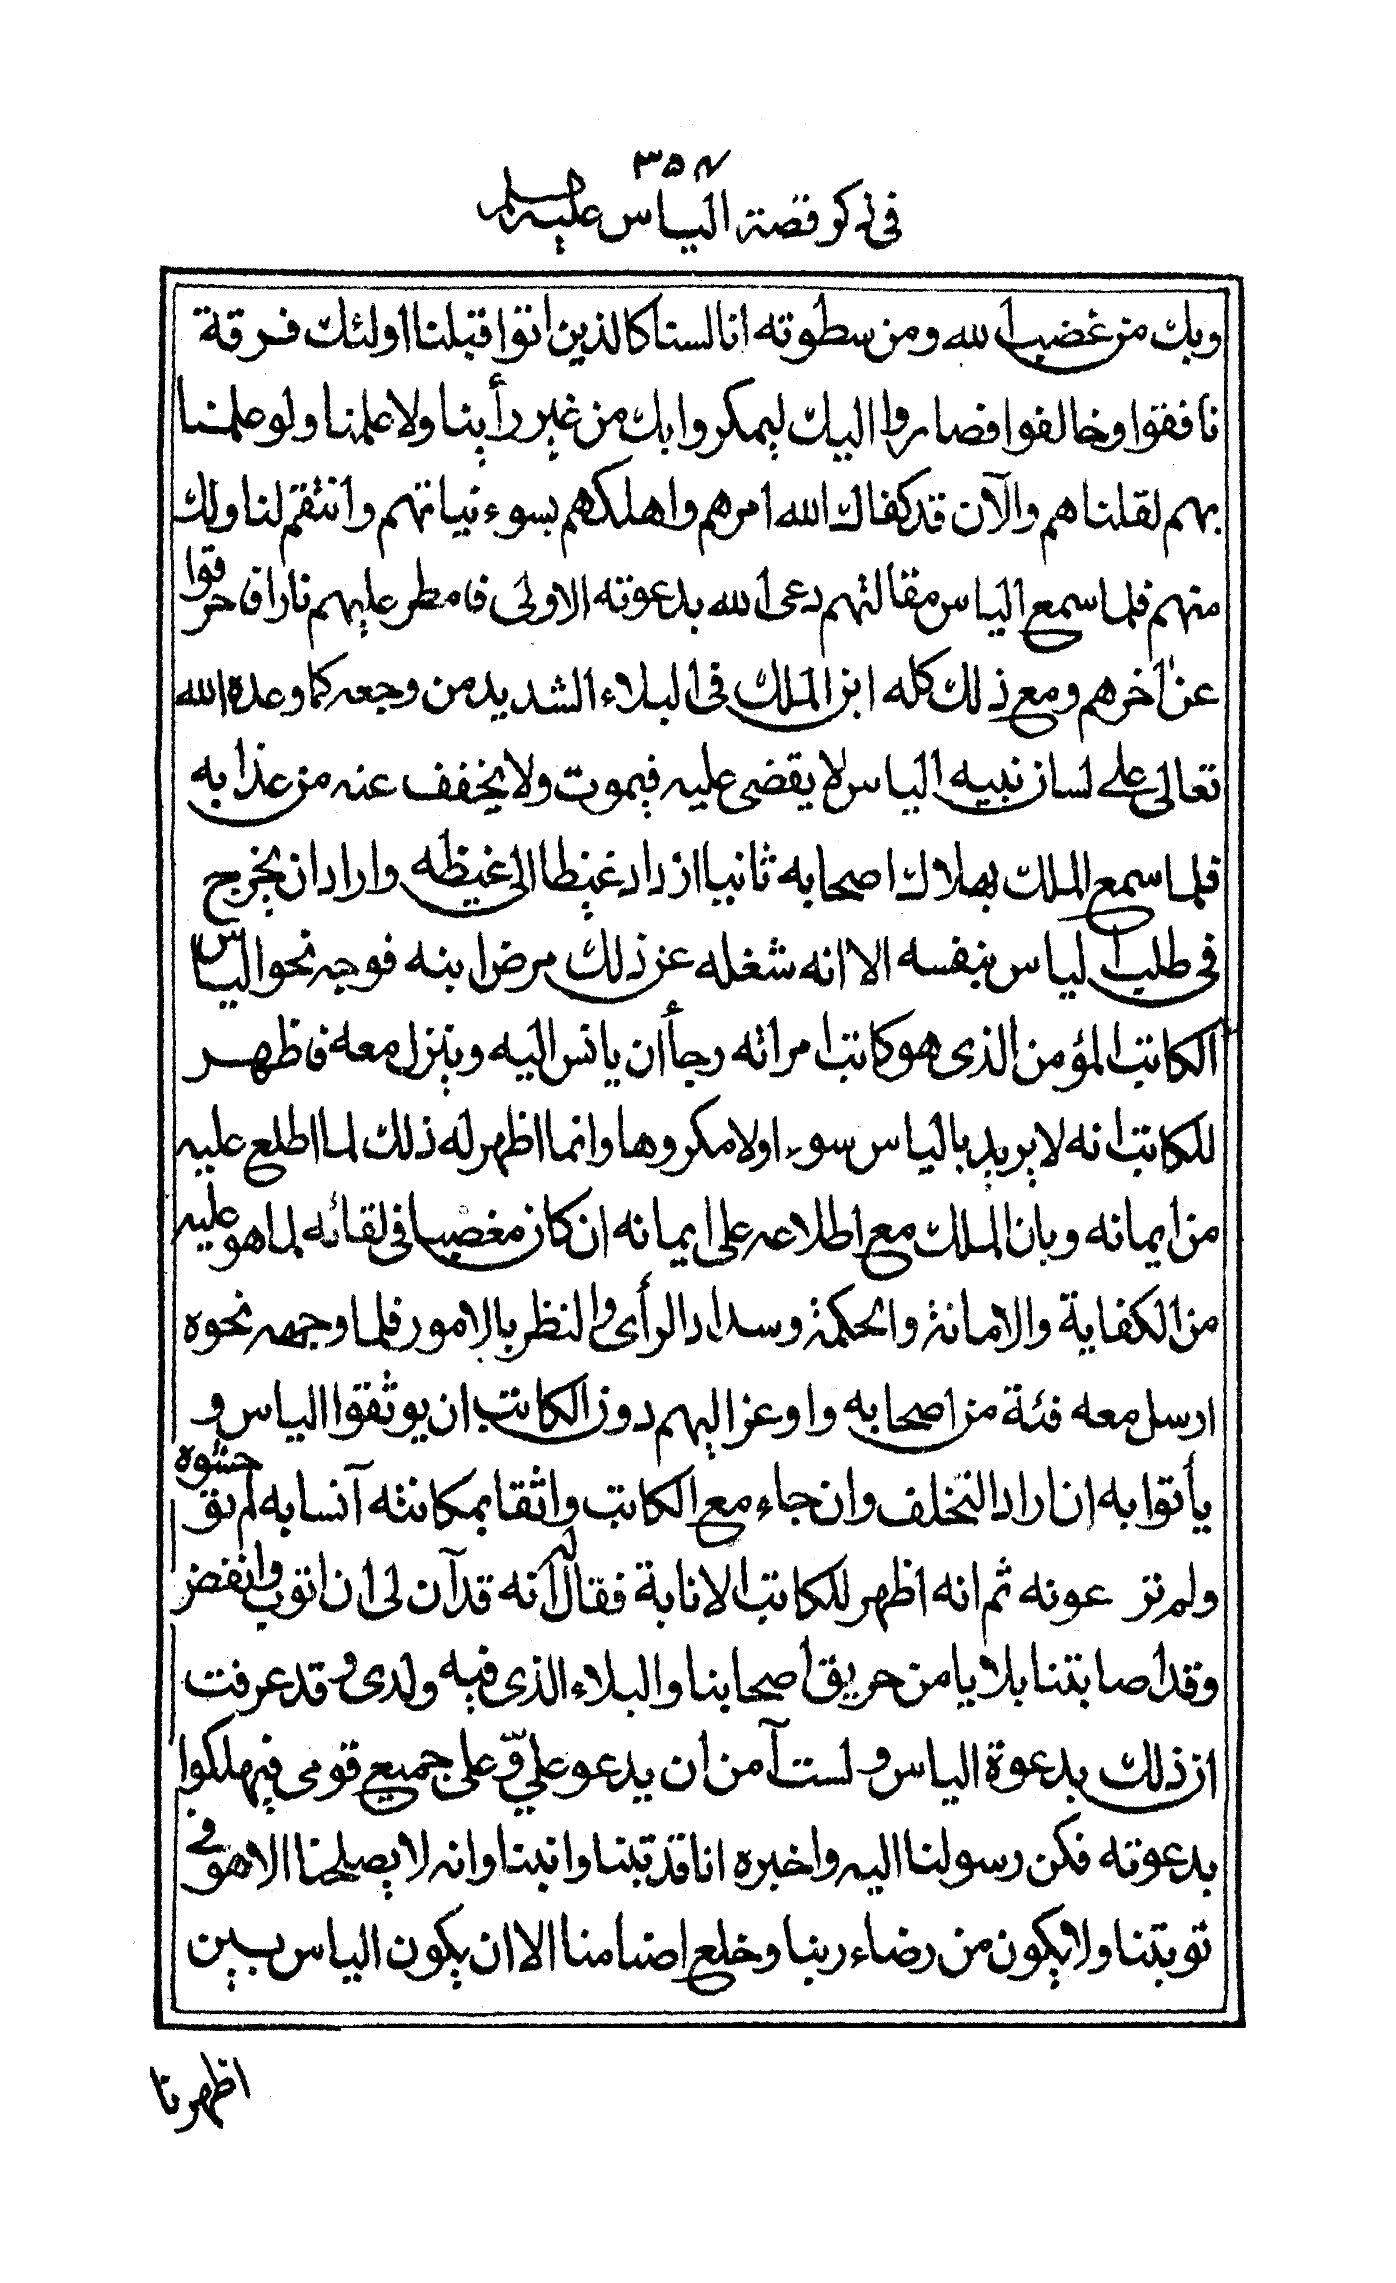 ٣٥٧
في ذكر قصة الياس عليه السلم
وبك من غضب الله ومن سطوته انا لسنا كالذين اتوا قبلنا اولئك فرقة
نافقوا وخالفوا فصاروا اليك ليمكروا بك من غير رأينا ولا علمنا ولو علمنا
بهم لقلناهم والآن قد كفاك الله امرهم واهلكهم بسوء نياتهم وانتقم لنا ولك
منهم فلما سمع الياس مقالتهم دعى الله بدعوته الاولى فامطر عليهم نارا فاحرقوا
عن اخرهم ومع ذلك كله ابن الملك في البلاء الشديد من وجعه كما وعده الله
تعالى على لسان نبيه الياس لا يقضى عليه فيموت ولا يخفف عنه من عذابه
فلما سمع الملك بهلاك اصحابه ثانيا ازداد غيظا الى غيظه واراد ان يخرج
في طلب الياس بنفسه الا انه شغله عن ذلك مرض ابنه فوجه نحو الياس
الكاتب المؤمن الذي هو كاتب امراته رجأ ان يانس اليه وينزل معه فاظهر
للكاتب انه لا يريد بالياس سوء اولا مكروها وانما اظهر له ذلك لما اطلع عليه
من ايمانه وبان الملك مع اطلاعه على ايمانه ان كان مغضبا في لقائه لما هو عليه
من الكفاية والامانة والحكمة وسداد الرأى والنظر بالامور فلما وجهه نحوه
ارسل معه فئة من اصحابه واوعز اليهم دون الكاتب ان يوثقوا الياس و
يأتوا به ان اراد التخلف وان جاء مع الكاتب واثقا بمكانته آنسا به لم يوحشوه
ولم تر عونه ثم انه اظهر للكاتب الانابة فقال له انه قد آن لى ان اتوب وانفض
وقد اصابتنا بلايا من حريق اصحابنا والبلاء الذي فيه ولدى و قد عرفت
ان ذلك بدعوة الياس و لست آمن ان يدعو علي و على جميع قومى فيهلكوا
بدعوته فكن رسولنا اليه واخبره انا قد تبنا وانبنا وانه لا يصلحنا الا هو في
توبتنا ولا يكون من رضاء ربنا وخلع اصنامنا الا ان يكون الياس بين
اظهرنا